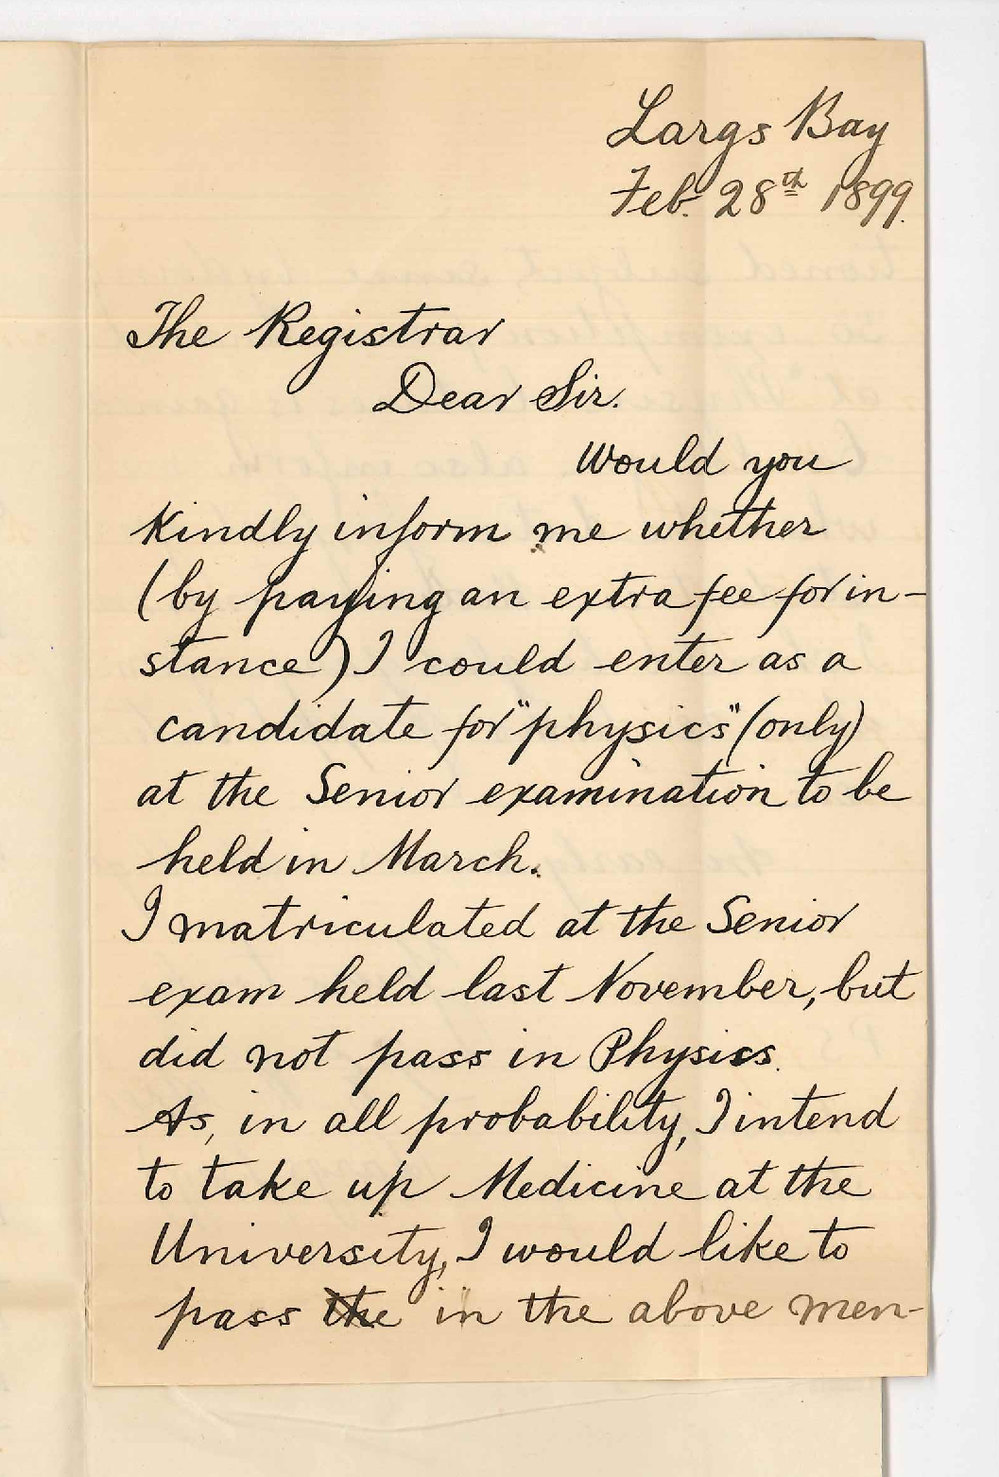 Largs Bay
Feb. 28th 1899.
The Registrar
Dear Sir.
Would you
kindly inform me whether
(by paying an extra fee for in-
stance) I could enter as a
candidate for "physics" (only)
at the Senior examination to be
held in March.
I matriculated at the Senior
exam held last November, but
did not pass in Physics.
As, in all probability, I intend
to take up Medicine at the
University, I would like to
pass the in the above men-